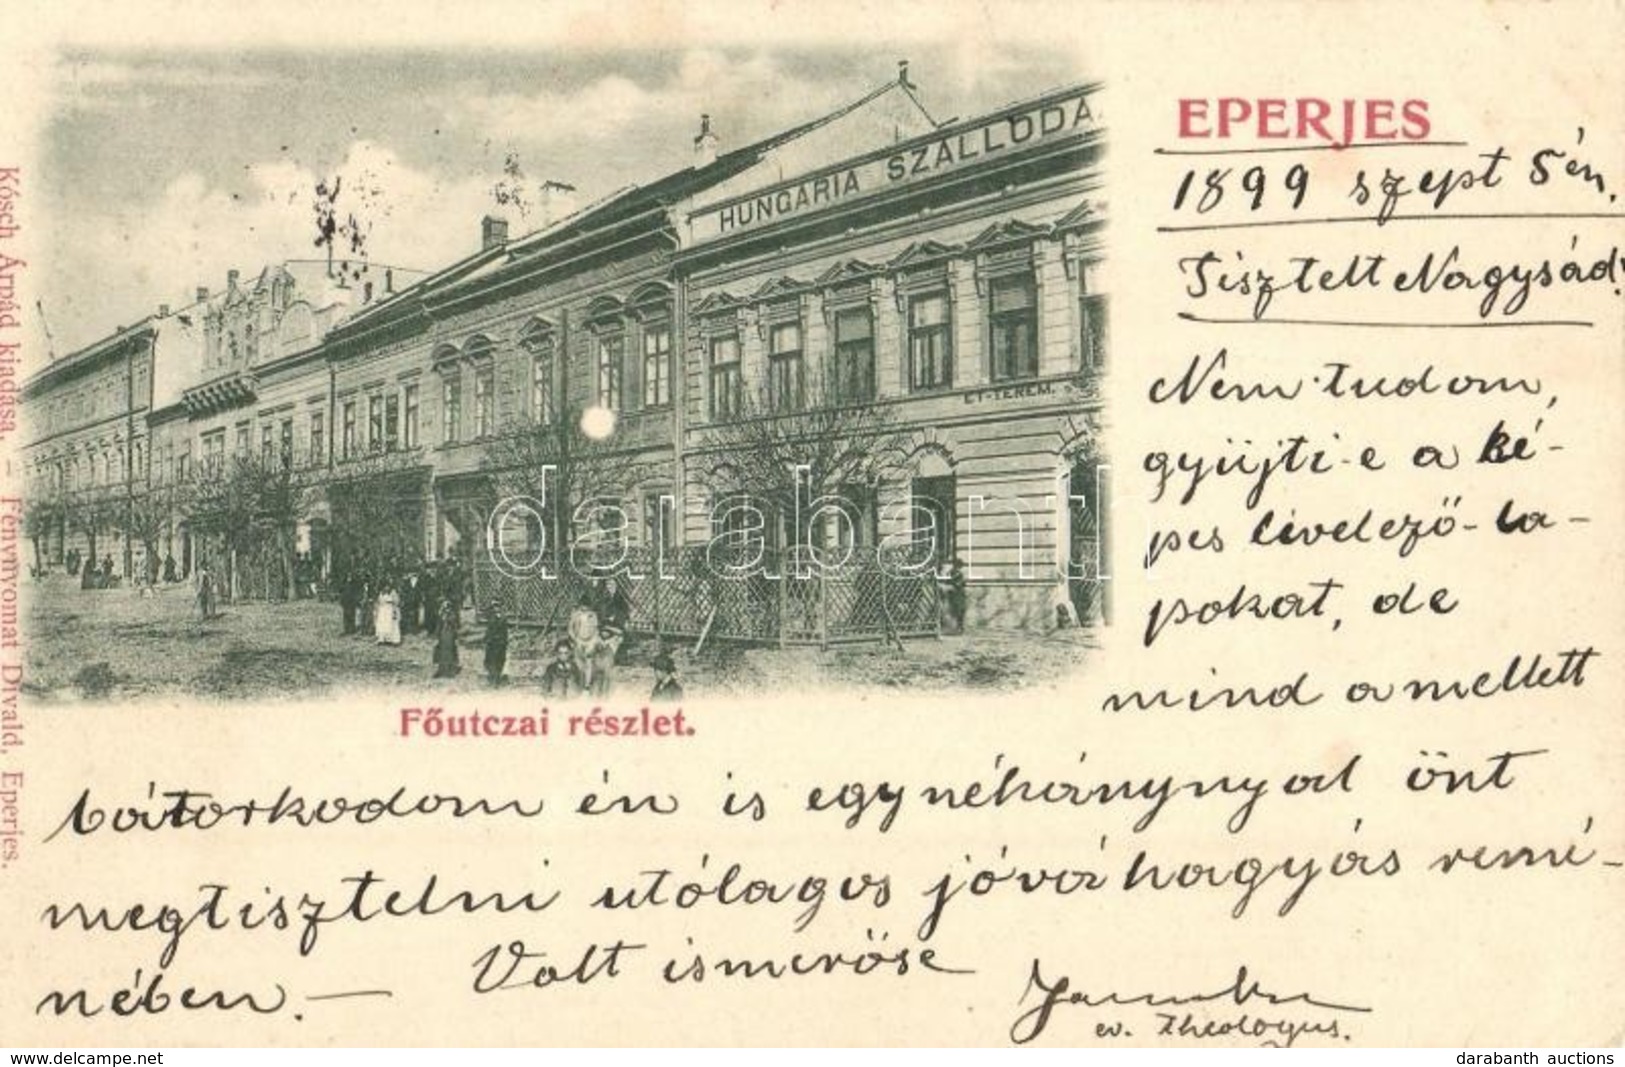 EPERJES
1899 szept 5én.
Tisztelt Nagysád!
Nem tudom,
gyüjti-e a ké-
pes levelező-la-
pokat, de
mind a mellett
bátorkodom én is egynéhánynyal önt
megtisztelni utólagos jóváhagyás remé-
nében. —
Volt ismerőse
ev. theologus.
HUNGARIA SZÁLLODA
ÉT-TEREM.
Főutczai részlet.
Kósch Árpád kiadása. – Fénynyomat Divald, Eperjes.
darabanth
delcampe.net
darabanth auctions